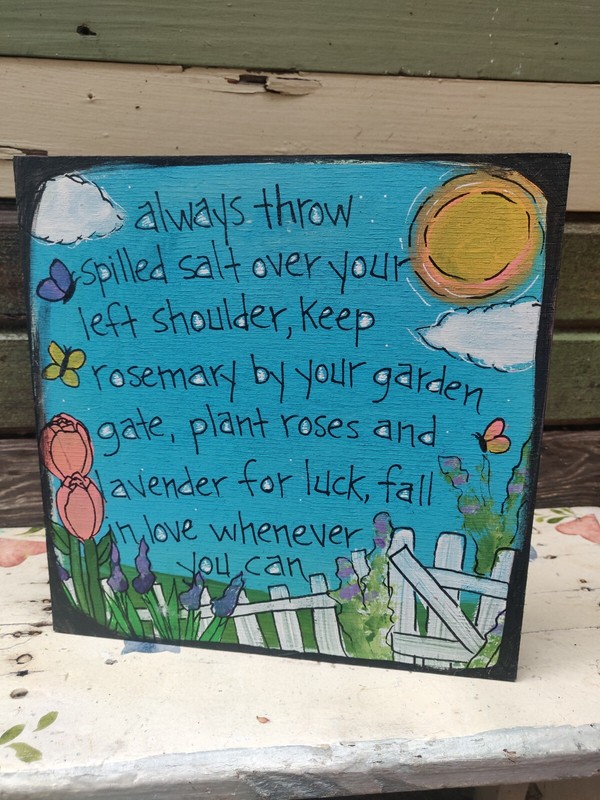 always throw
spilled salt over your
left shoulder, keep
rosemary by your garden
gate, plant roses and
lavender for luck, fall
in love whenever
you can